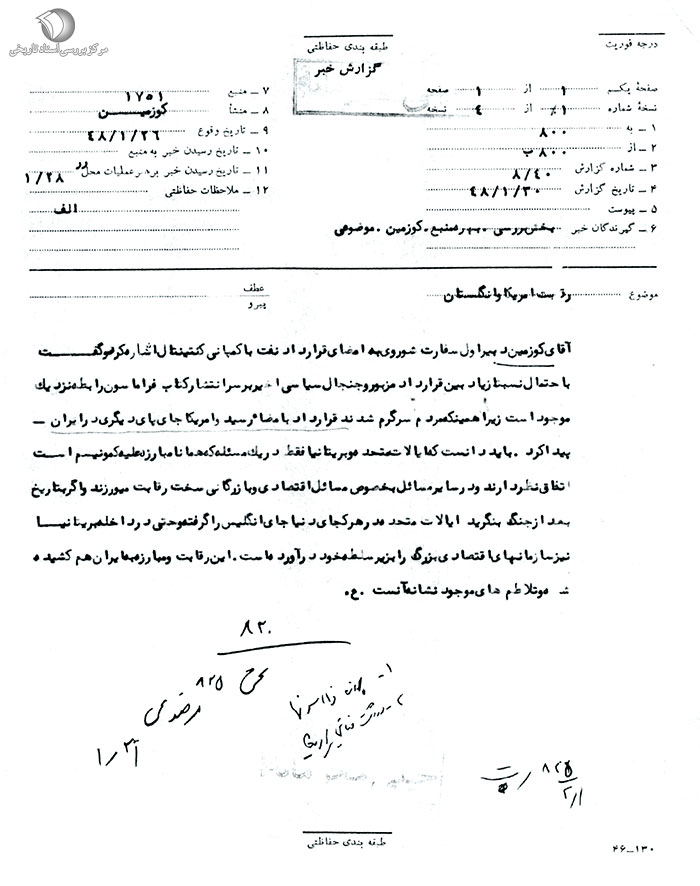 مرکز بررسی اسناد تاریخی
طبقه بندی حفاظتی
درجه فوریت
گزارش خبر
صفحهٔ یکم ۱ از ۱ صفحه
نسخهٔ شماره ۱٪ از ٤ نسخه
۱ ــ به ۸۰۰
۲ ــ از ۸۰۰ ب
۳ ــ شماره گزارش ۸/٤۰
۴ ــ تاریخ گزارش ٤۸/۱/۳۰
۵ ــ پیوست
۶ ــ گیرندگان خبر بخش بررسی ـ بهره منبع ـ کوزمین ـ موضوعی
۷ ــ منبع ۱۷۵۱
۸ ــ منشأ کوزمین
۹ ــ تاریخ وقوع ٤۸/۱/۲۶
۱۰ ــ تاریخ رسیدن خبر به منبع
۱۱ ــ تاریخ رسیدن خبر برهبر عملیات محل در ۱/۲۸
۱۲ ــ ملاحظات حفاظتی
الف
موضوع رقابت امریکا و انگلستان
عطف
پیرو
آقای کوزمین دبیر اول سفارت شوروی به امضای قرارداد نفت با کمپانی کنتیننتال اشاره کرد و گفت
با احتمال نسبتا زیاد بین قرارداد مزبور و جنجال سیاسی اخیر بر سر انتشار کتاب فراماسون رابطه نزدیک
موجود است زیرا همینکه مردم سرگرم شدند قرارداد بامضاء رسید و امریکا جای پای دیگری در ایران ــ
پیدا کرد . باید دانست که ایالات متحده و بریتانیا فقط در یک مسئله که همانا مبارزه علیه کمونیسم است
اتفاق نظر دارند و در سایر مسائل بخصوص مسائل اقتصادی و بازرگانی سخت رقابت میورزند و اگر بتاریخ
بعد از جنگ بنگرید ایالات متحده در هر کجای دنیا جای انگلیس را گرفته و حتی در داخله بریتانیا
نیز سازمانهای اقتصادی بزرگ را بزیر سلطه خود در آورده است . این رقابت و مبارزه به ایران هم کشیده
شده و تلاطم های موجود نشانه آنست . ع .
۸۲۰
۸۲۵
طبقه بندی حفاظتی
۴۶ــ۱۳۰